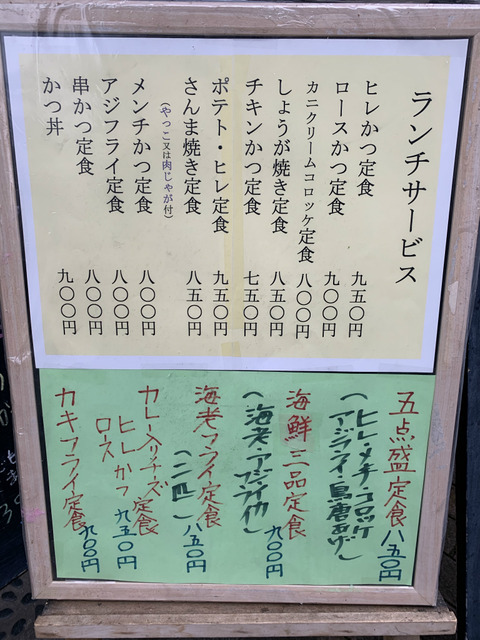 ランチサービス
ヒレかつ定食 九五〇円
ロースかつ定食 九〇〇円
カニクリームコロッケ定食 八〇〇円
しょうが焼き定食 八五〇円
チキンかつ定食 七五〇円
ポテト・ヒレ定食 九五〇円
さんま焼き定食 八五〇円
(やっこ又は肉じゃが付)
メンチかつ定食 八〇〇円
アジフライ定食 八〇〇円
串かつ定食 八〇〇円
かつ丼 九〇〇円
五点盛定食 八五〇円
(ヒレ・メチ・コロッケ
アジフライ・鳥唐あげ)
海鮮三品定食 九〇〇円
(海老・アジフライ・イカ)
海老フライ定食 八五〇円
(二匹)
カレー入りチーズ定食
ヒレかつ 九五〇円
ロース
カキフライ定食 九〇〇円